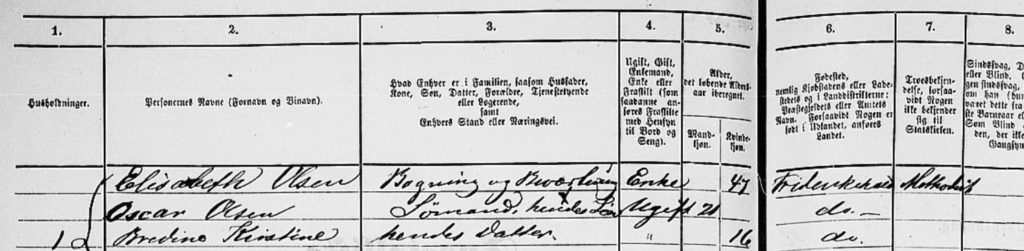 1. 2. 3. 4. 5. 6. 7. 8.
Husholdninger.
Personernes Navne (Fornavn og Binavn).
Hvad Enhver er i Familien, saasom Husfader,
Kone, Søn, Datter, Forældre, Tjenestetyende
eller Logerende,
samt
Enhvers Stand eller Næringsvei.
Ugift, Gift,
Enkemand,
Enke eller
Fraskilt (som
saadanne an-
føres Fraskilte
med Hensyn
til Bord og
Seng).
Alder,
det løbende Alders-
aar iberegnet.
Mand-
kjøn.
Kvinde-
kjøn.
Fødested,
nemlig Kjøbstadens eller Lade-
stedets og i Landdistrikterne:
Præstegjeldets eller Amtets
Navn. Forsaavidt Nogen er
født i Udlandet, anføres
Landet.
Troesbekjen-
delse, forsaa-
vidt Nogen
ikke bekjender
sig til
Statskirken.
Sindssvag, D
eller Blind.
gen sindssvag,
om han (hun
været dette fra
te Barneaar el
Som Blind
den, der ikke
Gangsyn
Elisabeth Olsen Bogning og Beværtning Enke 47 Friderikshald Methodist
Oscar Olsen Sømand, hendes Søn Ugift 21 do. —
1 Bredine Kirstine hendes Datter. " 16 do.